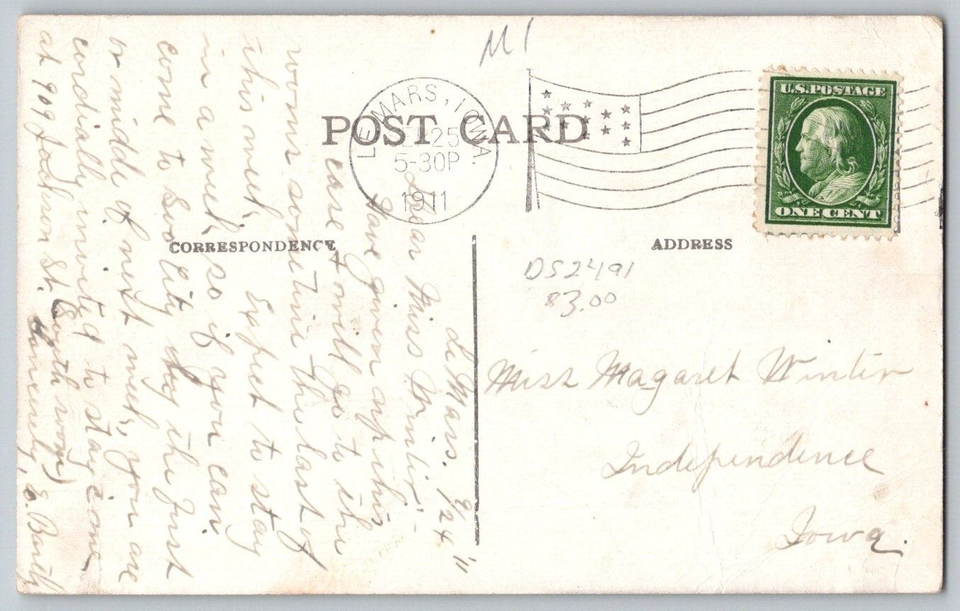 M1
POST CARD
LE MARS, IOWA.
25
5-30P
1911
U.S. POSTAGE
ONE CENT
CORRESPONDENCE
ADDRESS
DS2491
$3.00
Miss Magaret Winter
Independence
Iowa.
Le Mars, 9/24 '11
Dear Miss Winter:-
Have given up this
case & will go to the
woods some time the last of
this week. Expect to stay
in a week, so if you can
come to So City by the first
or middle of next week, you are
cordially invited to stay, come
at 909 Jackson St. (South room)
Sincerely, E.